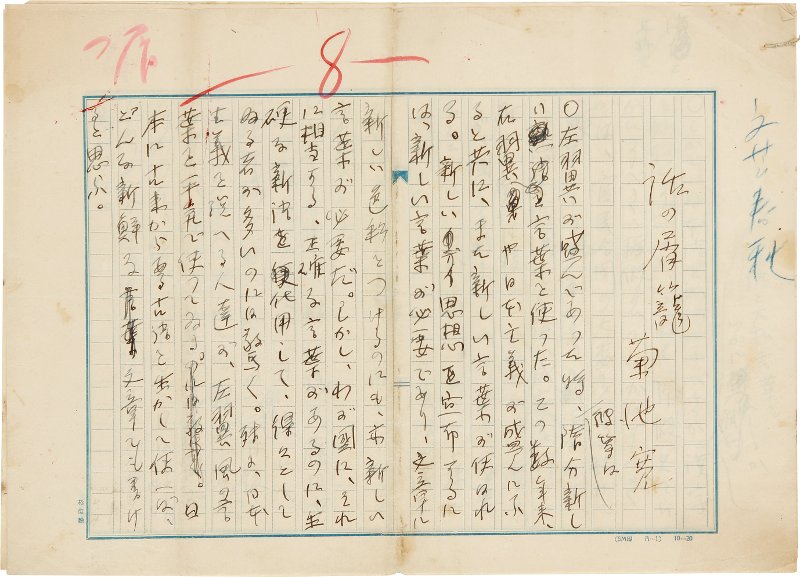 文芸春秋
話の屑籠
菊池寛
〇左翼が盛んであった時、随分新し
い言葉を使った。この数年来、
右翼や日本主義が盛んにな
ると共に、また新しい言葉が使はれ
る。新しい思想を宣布するに
は、新しい言葉が必要であり、文章に
新しい色彩をつけるのにも、亦新しい
言葉が必要だ。しかし、わが国に、それ
に相当する、正確な言葉があるのに、生
硬な新語を使用して、得々として
ゐる者が多いのには驚く。殊に、日本
主義を説へる人達が、左翼風の言
葉を平気で使つてゐる。
本に古来からある古語を生かして使へば、
どんな新鮮な文章でも書け
ると思ふ。
8